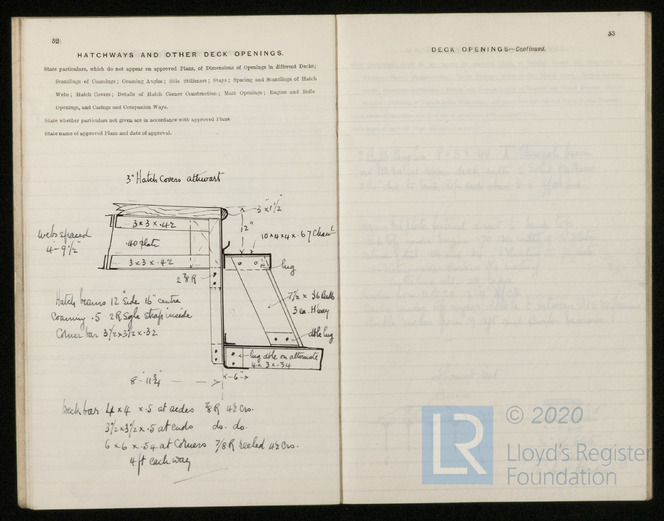 52
HATCHWAYS AND OTHER DECK OPENINGS.
State particulars, which do not appear on approved Plans, of Dimensions of Openings in different Decks;
Scantlings of Coamings; Coaming Angles; Side Stiffeners; Stays; Spacing and Scantlings of Hatch
Webs; Hatch Covers; Details of Hatch Corner Construction; Mast Openings; Engine and Boiler
Openings, and Casings and Companion Ways.
State whether particulars not given are in accordance with approved Plans.
State name of approved Plans and date of approval.
3" Hatch Covers athwart
3 × 1½"
3 × 3 × .42
12"
10 × 4 × 4 × .67
webs spaced
4'-9½"
.40 plate
3 × 3 × .42
2 ⅞ R
lug
Hatch beams 12" side 16" centre
Coaming .5 2R Sgle strap inside
Corner bar 3½ × 3½ × .32
7½ × .36 Bulb
dble lug
lug dble on alternate
4 × 3 × .34
8'-11¾"
6"
Deck bar 4 × 4 × .5 at sides ⅞ R 4½ crs.
3½ × 3½ × .5 at ends do. do.
6 × 6 × .54 at corners ⅞ R reeled 4½ crs.
4 ft each way
53
DECK OPENINGS—Continued.
© 2020
LR
Lloyd's Register
Foundation